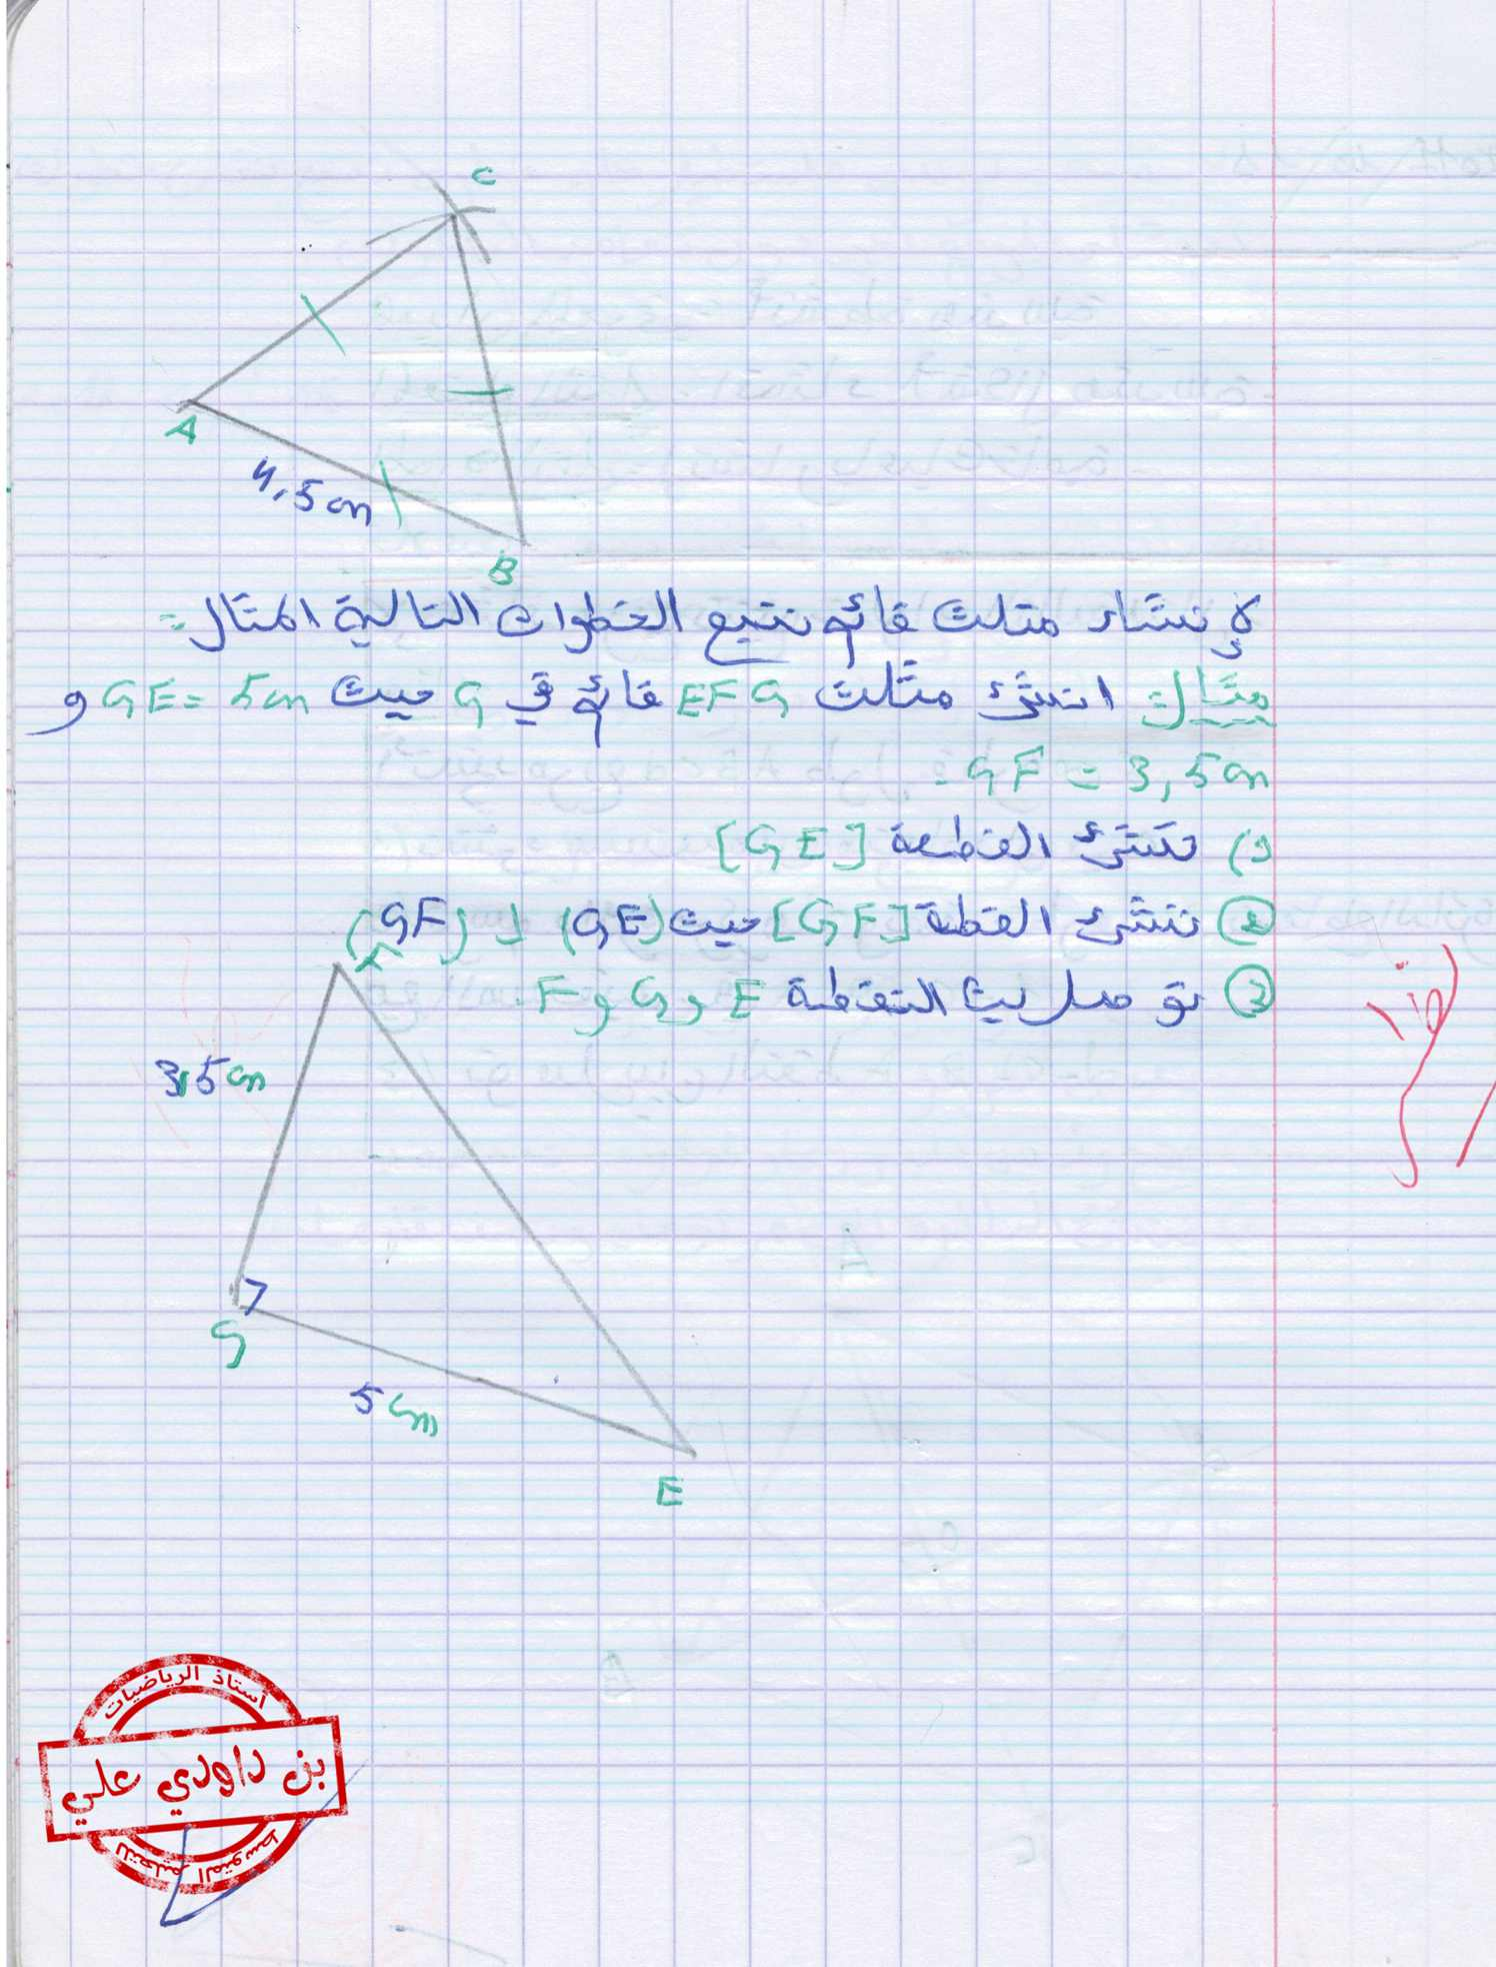 C
A
4,5 cm
B
لإنشاء مثلث قائم نتبع الخطوات التالية المثال =
مثال = انشئ مثلث EFG قائم في G حيث GE = 5cm و
GF = 3,5 cm.
1) ننشئ القطعة [GE]
② ننشئ القطة [GF] حيث (GE) ⊥ (GF)
③ نوصل بين النقطة E و G و F.
3,5 cm
G
5 cm
E
أستاذ الرياضيات
بن داودي علي
للتعليم المتوسط